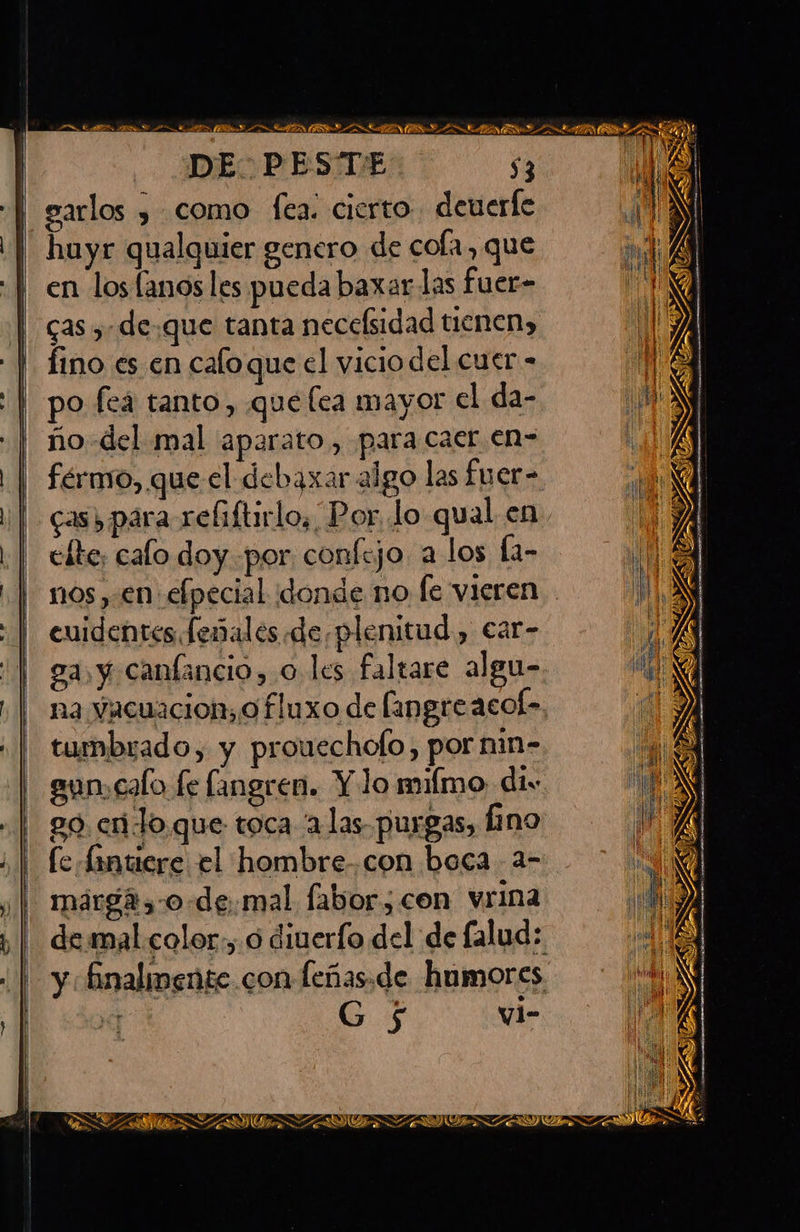 DE PESTE 53
garlos, como ſea cierto deuerſe
huyr qualquier genero de coſa, que
en los ſanos les pueda baxar las fuer-
ças, de que tanta neceſsidad tienen,
ſino es en caſo que el vicio del cuer-
po ſeà tanto, que ſea mayor el da-
ño del mal aparato, para caer en-
férmo, que el debaxar algo las fuer-
ças, pára reſiſtirlo, Por lo qual en
eſte caſo doy por conſejo a los ſa-
nos, en eſpecial donde no ſe vieren
euidentes ſeñales de plenitud, car-
ga, y canſancio, o les faltare algu-
na vacuacion, o fluxo de ſangre acoſ-
tumbrado, y prouechoſo, por nin-
gun caſo ſe ſangren. Y lo miſmo di-
go en lo que toca a las purgas, ſino
ſe ſintiere el hombre con boca a-
márga, o de mal ſabor, con vrina
de mal color, o diuerſo del de ſalud:
y finalmente con ſeñas de humores
G 5 vi-